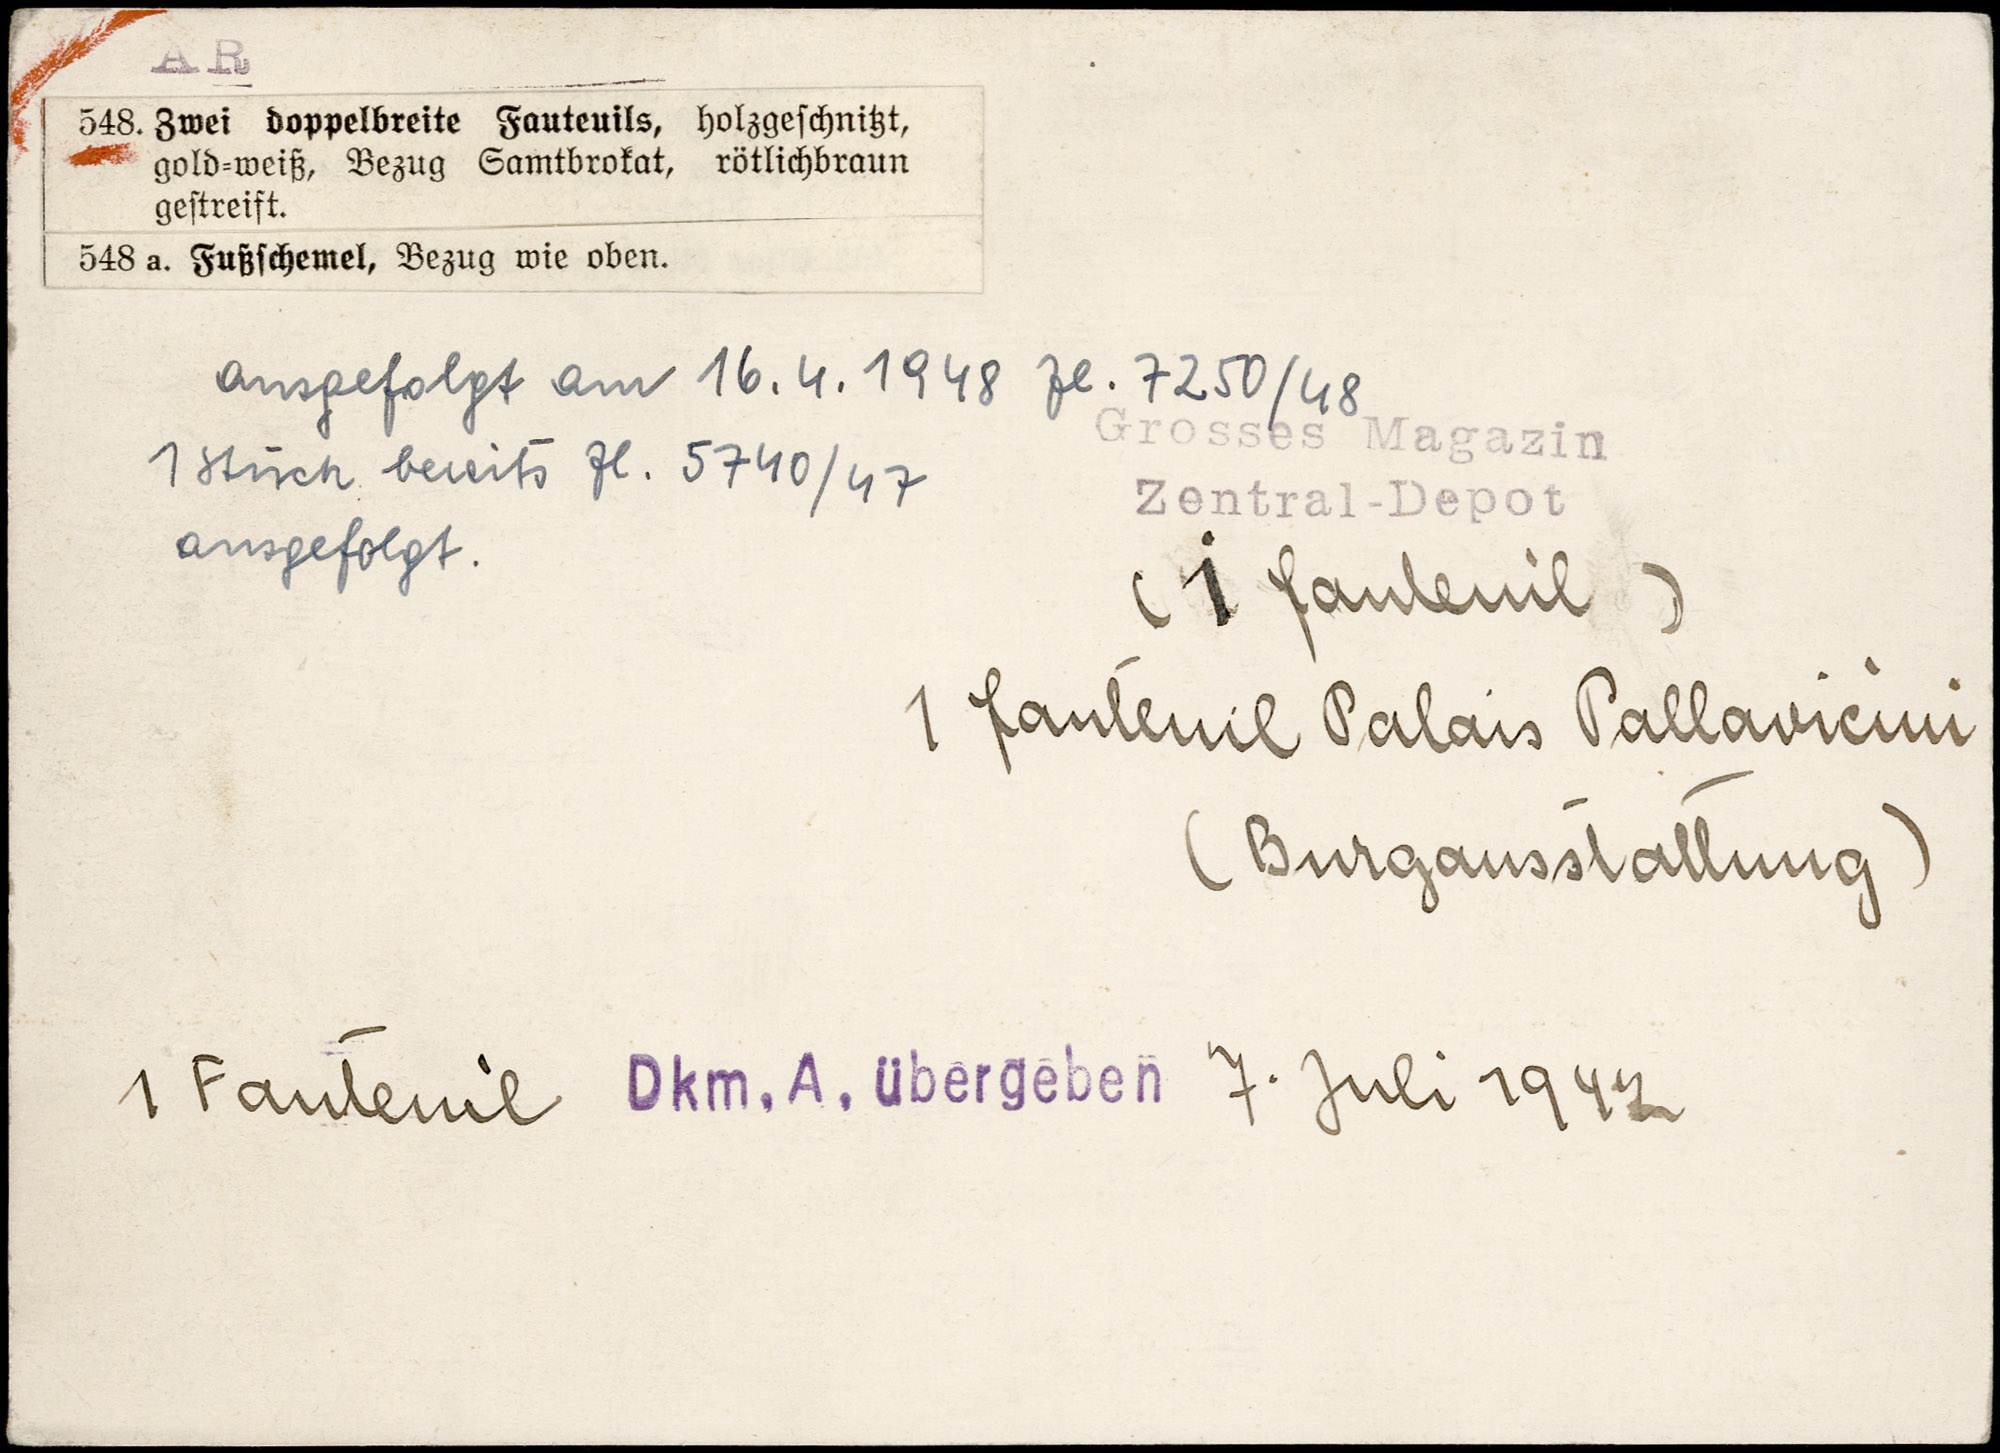 AR
548. Zwei doppelbreite Fauteuils, holzgeschnitzt,
gold=weiß, Bezug Samtbrokat, rötlichbraun
gestreift.
548 a. Fußschemel, Bezug wie oben.
ausgefolgt am 16.4.1948 Zl. 7250/48
1 Stück bereits Zl. 5740/47
ausgefolgt.
Grosses Magazin
Zentral-Depot
( 1 Fauteuil )
1 Fauteuil Palais Pallavicini
( Burgausstattung )
1 Fauteuil Dkm. A. übergeben 7. Juli 1942